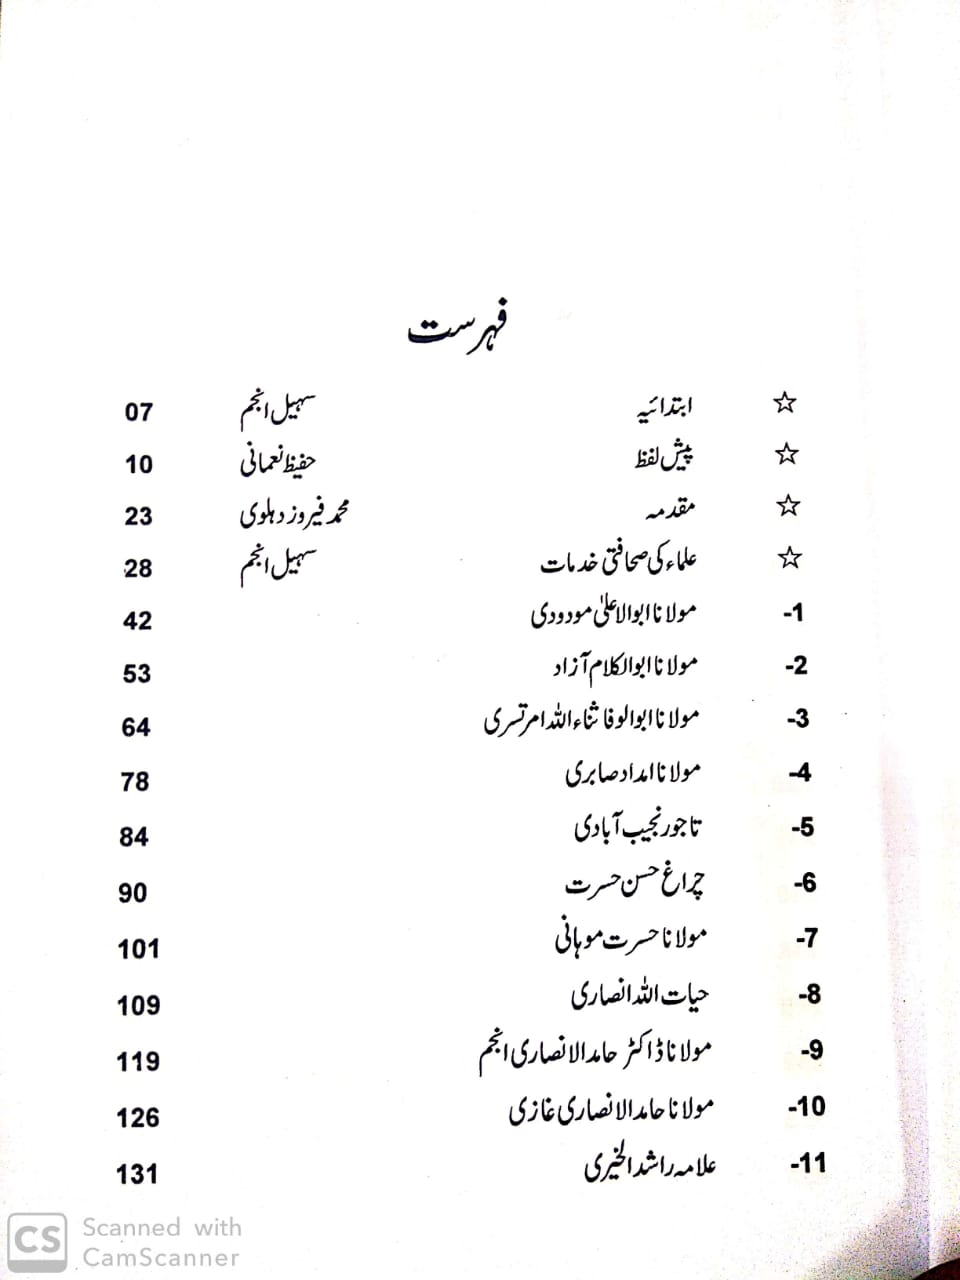 فہرست
☆ ابتدائیہ سہیل انجم 07
☆ پیش لفظ حفیظ نعمانی 10
☆ مقدمہ محمد فیروز دہلوی 23
☆ علماء کی صحافتی خدمات سہیل انجم 28
1- مولانا ابوالاعلیٰ مودودی 42
2- مولانا ابوالکلام آزاد 53
3- مولانا ابوالوفا ثناء اللہ امرتسری 64
4- مولانا امداد صابری 78
5- تاجور نجیب آبادی 84
6- چراغ حسن حسرت 90
7- مولانا حسرت موہانی 101
8- حیات اللہ انصاری 109
9- مولانا ڈاکٹر حامد الانصاری انجم 119
10- مولانا حامد الانصاری غازی 126
11- علامہ راشد الخیری 131
CS Scanned with
CamScanner